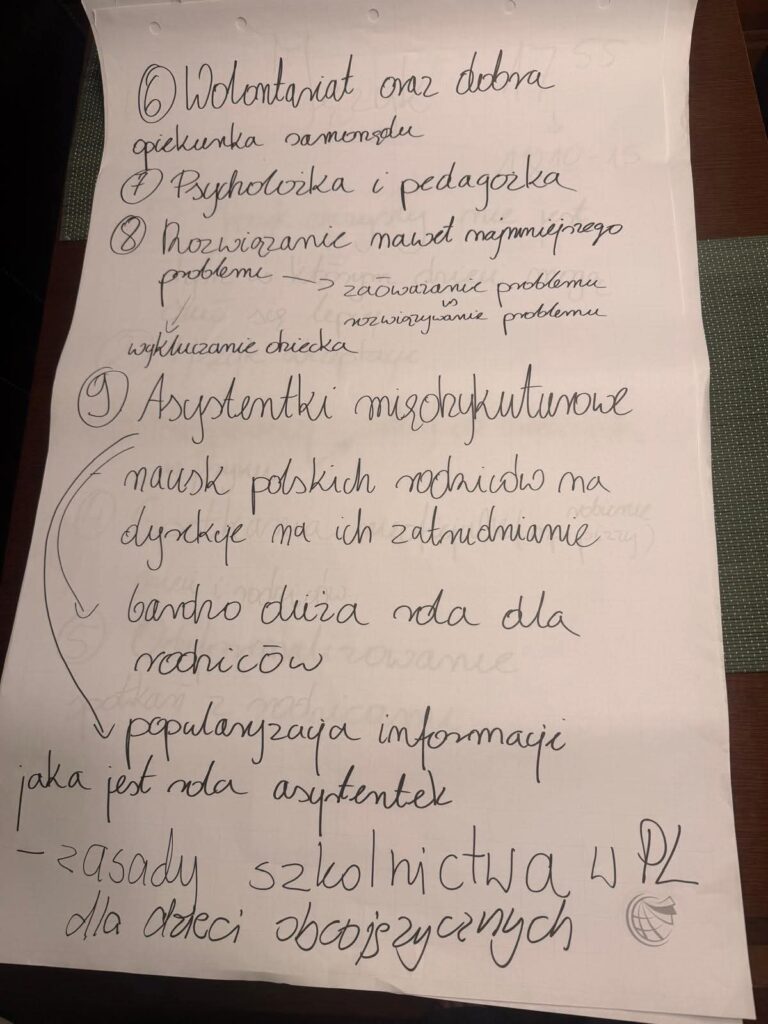 ⑥ Wolontariat oraz dobra
opiekunka samorządu
⑦ Psycholożka i pedagożka
⑧ Rozwiązanie nawet najmniejszego
problemu → zaöważanie problemu
vs
rozwiązywanie problemu
wykluczanie dziecka
⑨ Asystentki międzykuturowe
- nacisk polskich rodziców na
dyrekcje na ich zatrudnianie
bardzo duża rola dla
rodziców
popularyzacja informacji
jaka jest rola asystentek
- zasady szkolnictwa w PL
dla dzieci obcojęzycznych